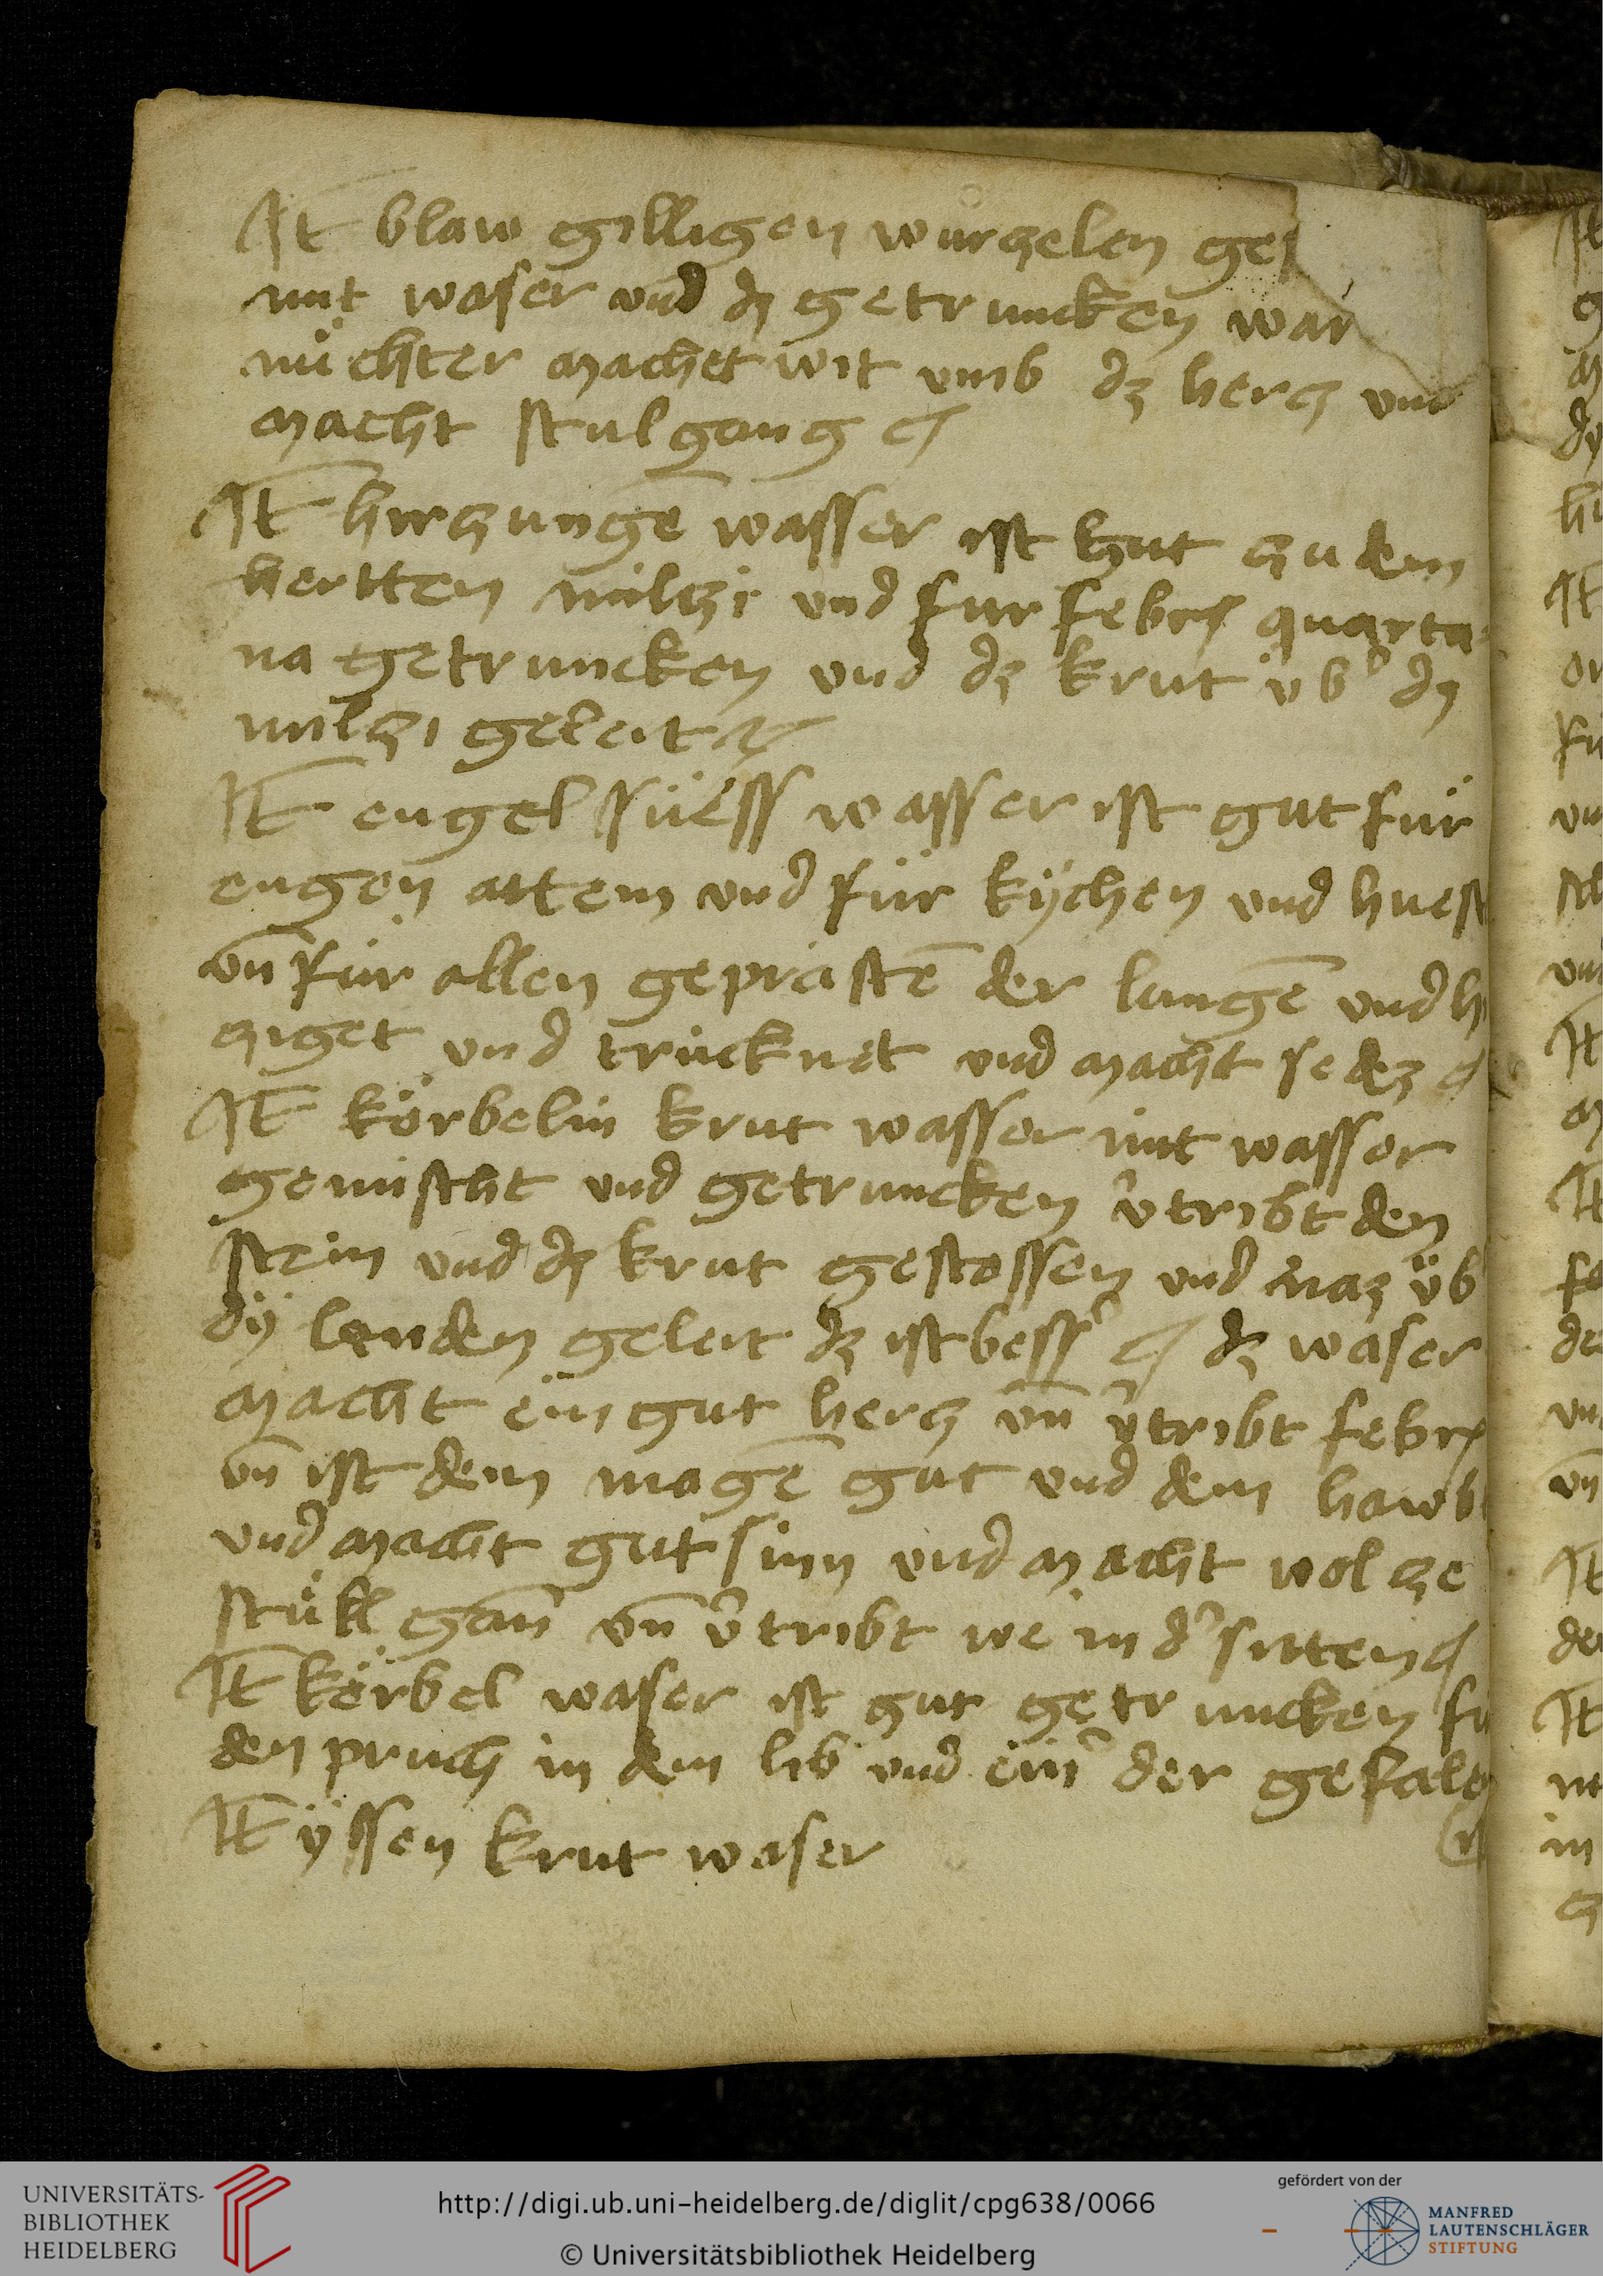 It blaw gilligen wurczelen ge
mit waser und dz getruncken war
nüchter machet wit umb dz hercz und
macht stulgang
It hirczungē wasser ist gut czu dem
hertten milczi und fur febrs quarta
na getruncken und dz krut üb' dz
milczi geleit
It engel süess wasser ist gut für
engen attem und für kÿchen und huest
vn̄ für allen geprästē der lungē und hi
cziget und trücknet und macht sedez
It körbelin krut wasser mit wasser
gemischt und getruncken v'tribt den
stein und dz krut gestossen und naz üb'
dÿ lenden geleit dz ist bess' dz waser
macht ein gut hercz vn̄ v'tribt febrs
vn̄ ist dem magē gut und dem hawb
und macht gut sinn und macht wol cze
stükl gan vn̄ v'tribt we in d' sitten
It körbel waser ist gut getruncken fü
den pruch in dem lib und ein' der gefale
It ÿssen krut waser
UNIVERSITÄTS-
BIBLIOTHEK
HEIDELBERG
http://digi.ub.uni-heidelberg.de/diglit/cpg638/0066
© Universitätsbibliothek Heidelberg
gefördert von der
MANFRED
LAUTENSCHLÄGER
STIFTUNG